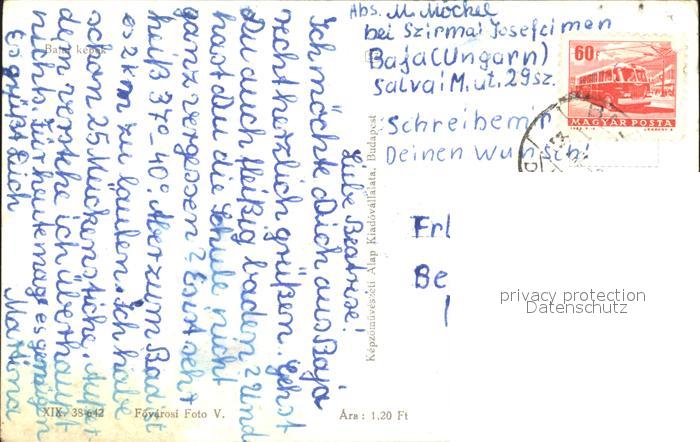 Abs. M. Möckel
bei Szirmai Josefcimen
Baja (Ungarn)
Salvai M. út. 29 sz.
Schreibe mir
Deinen Wunsch!
60f
MAGYAR POSTA
Liebe Beatrixe!
Ich möchte Dich aus Baja
recht herzlich grüßen. Gehst
Du auch fleißig baden? Und
hast Du die Schule nicht
ganz vergessen? Es ist sehr
heiß 37°-40°. Aber zum Bad ist
es 2 km zu laufen. Ich habe
schon 25 Mückenstiche. Außer
dem verstehe ich überhaupt
nichts. Für heute mag es genügen
Es grüßt Dich
Martina
Bajai képek
Képzőművészeti Alap Kiadóvállalata, Budapest
Erl
Be
privacy protection
Datenschutz
XIX. 38-642 Fővárosi Foto V. Ára: 1,20 Ft